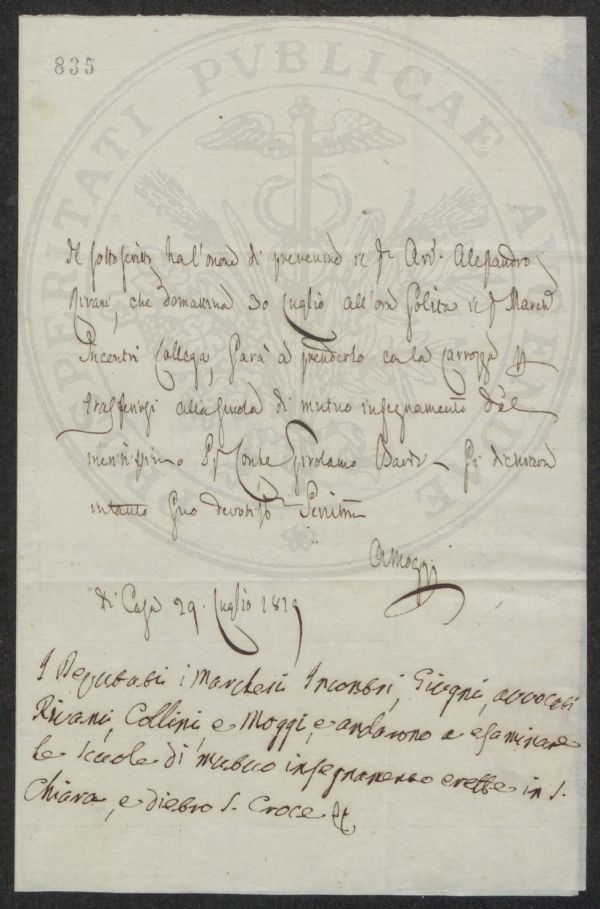 835
PROSPERITATI PUBLICAE AUGENDAE
Il sottoscritto ha l'onore di prevenire il Sr Avv. Alessandro
Rivani, che domattina 30 Luglio all'ora solita il Sr March
Incontri Collega, sarà a prenderlo co la carrozza p
trasferirsi alla scuola di mutuo insegnamento del
Sr Conte Girolamo Bardi si dichiara
intanto suo devotiss. Servitore
AMoggi
di Casa 29. Luglio 1819
I Deputati i Marchesi Incontri, Giugni, avvocati
Rivani, Collini, e Moggi, e andarono a esaminare
le scuole di mutuo insegnamento erette in S.
Chiara, e dietro S. Croce